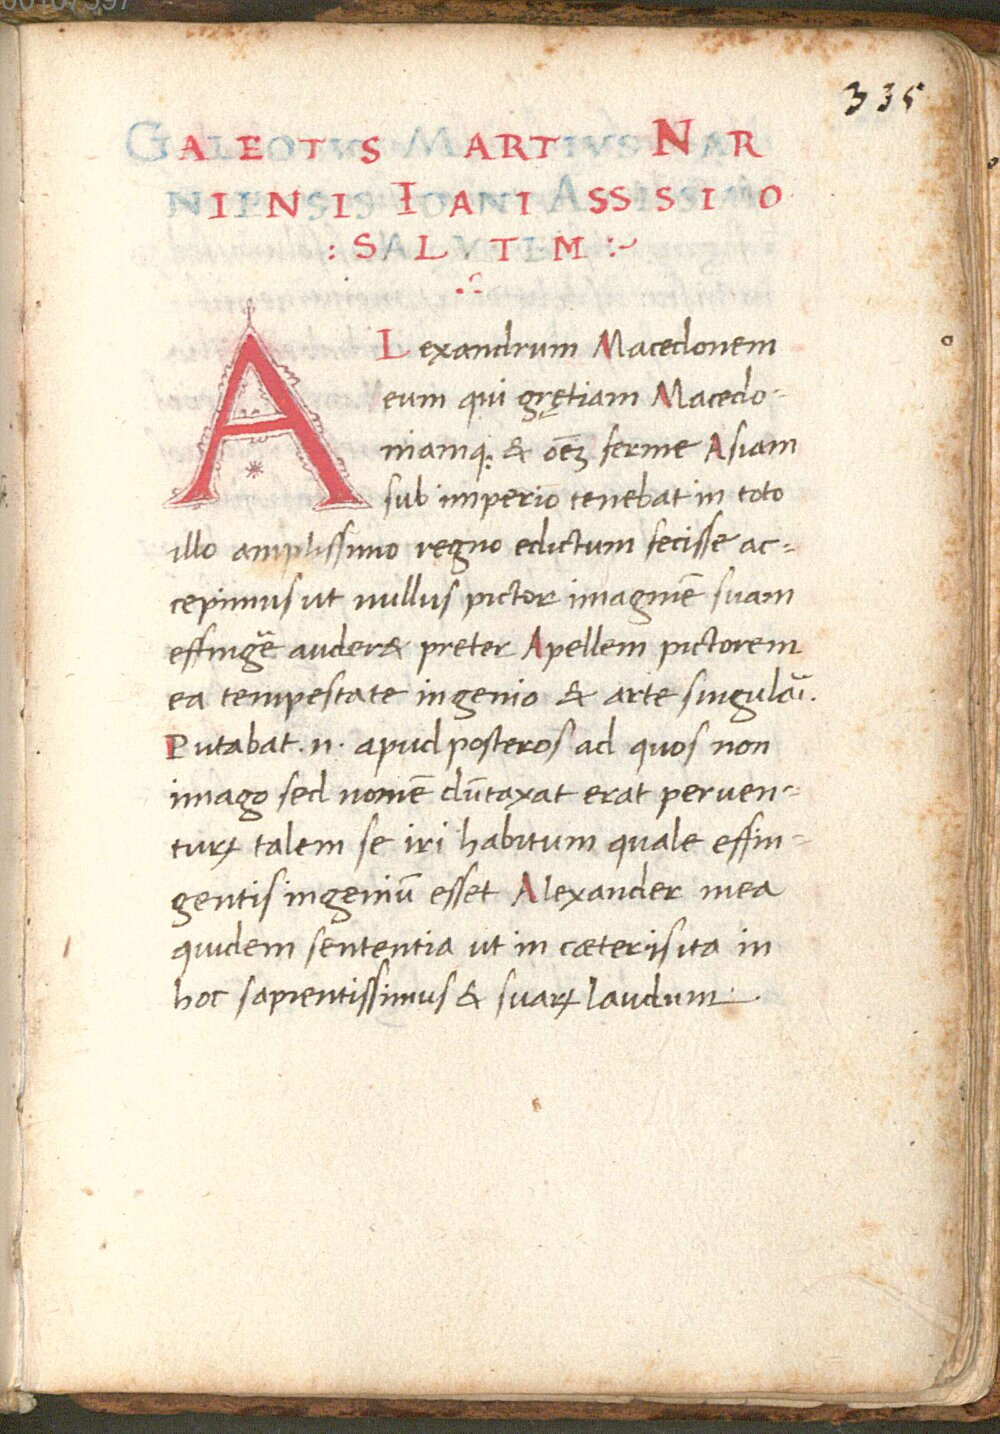 335
GALEOTVS MARTIVS NAR
NIENSIS IOANI ASSISSIO
:SALVTEM:~
ALexandrum Macedonem
eum qui grętiam Macedo-
niamq; & oēz ferme Asiam
sub imperio tenebat in toto
illo amplissimo regno edictum fecisse ac=
cepimus ut nullus pictor imaginē suam
effingē̄ auder& preter Apellem pictorem
ea tempestate ingenio & arte singulāi.
Putabat .n. apud posteros ad quos non
imago sed nomē dūtaxat erat peruen=
turꝝ talem se iri habitum quale effin=
gentis ingeniū esset Alexander mea
quidem sententia ut in cæteris ita in
hoc sapientissimus & suarꝝ laudum